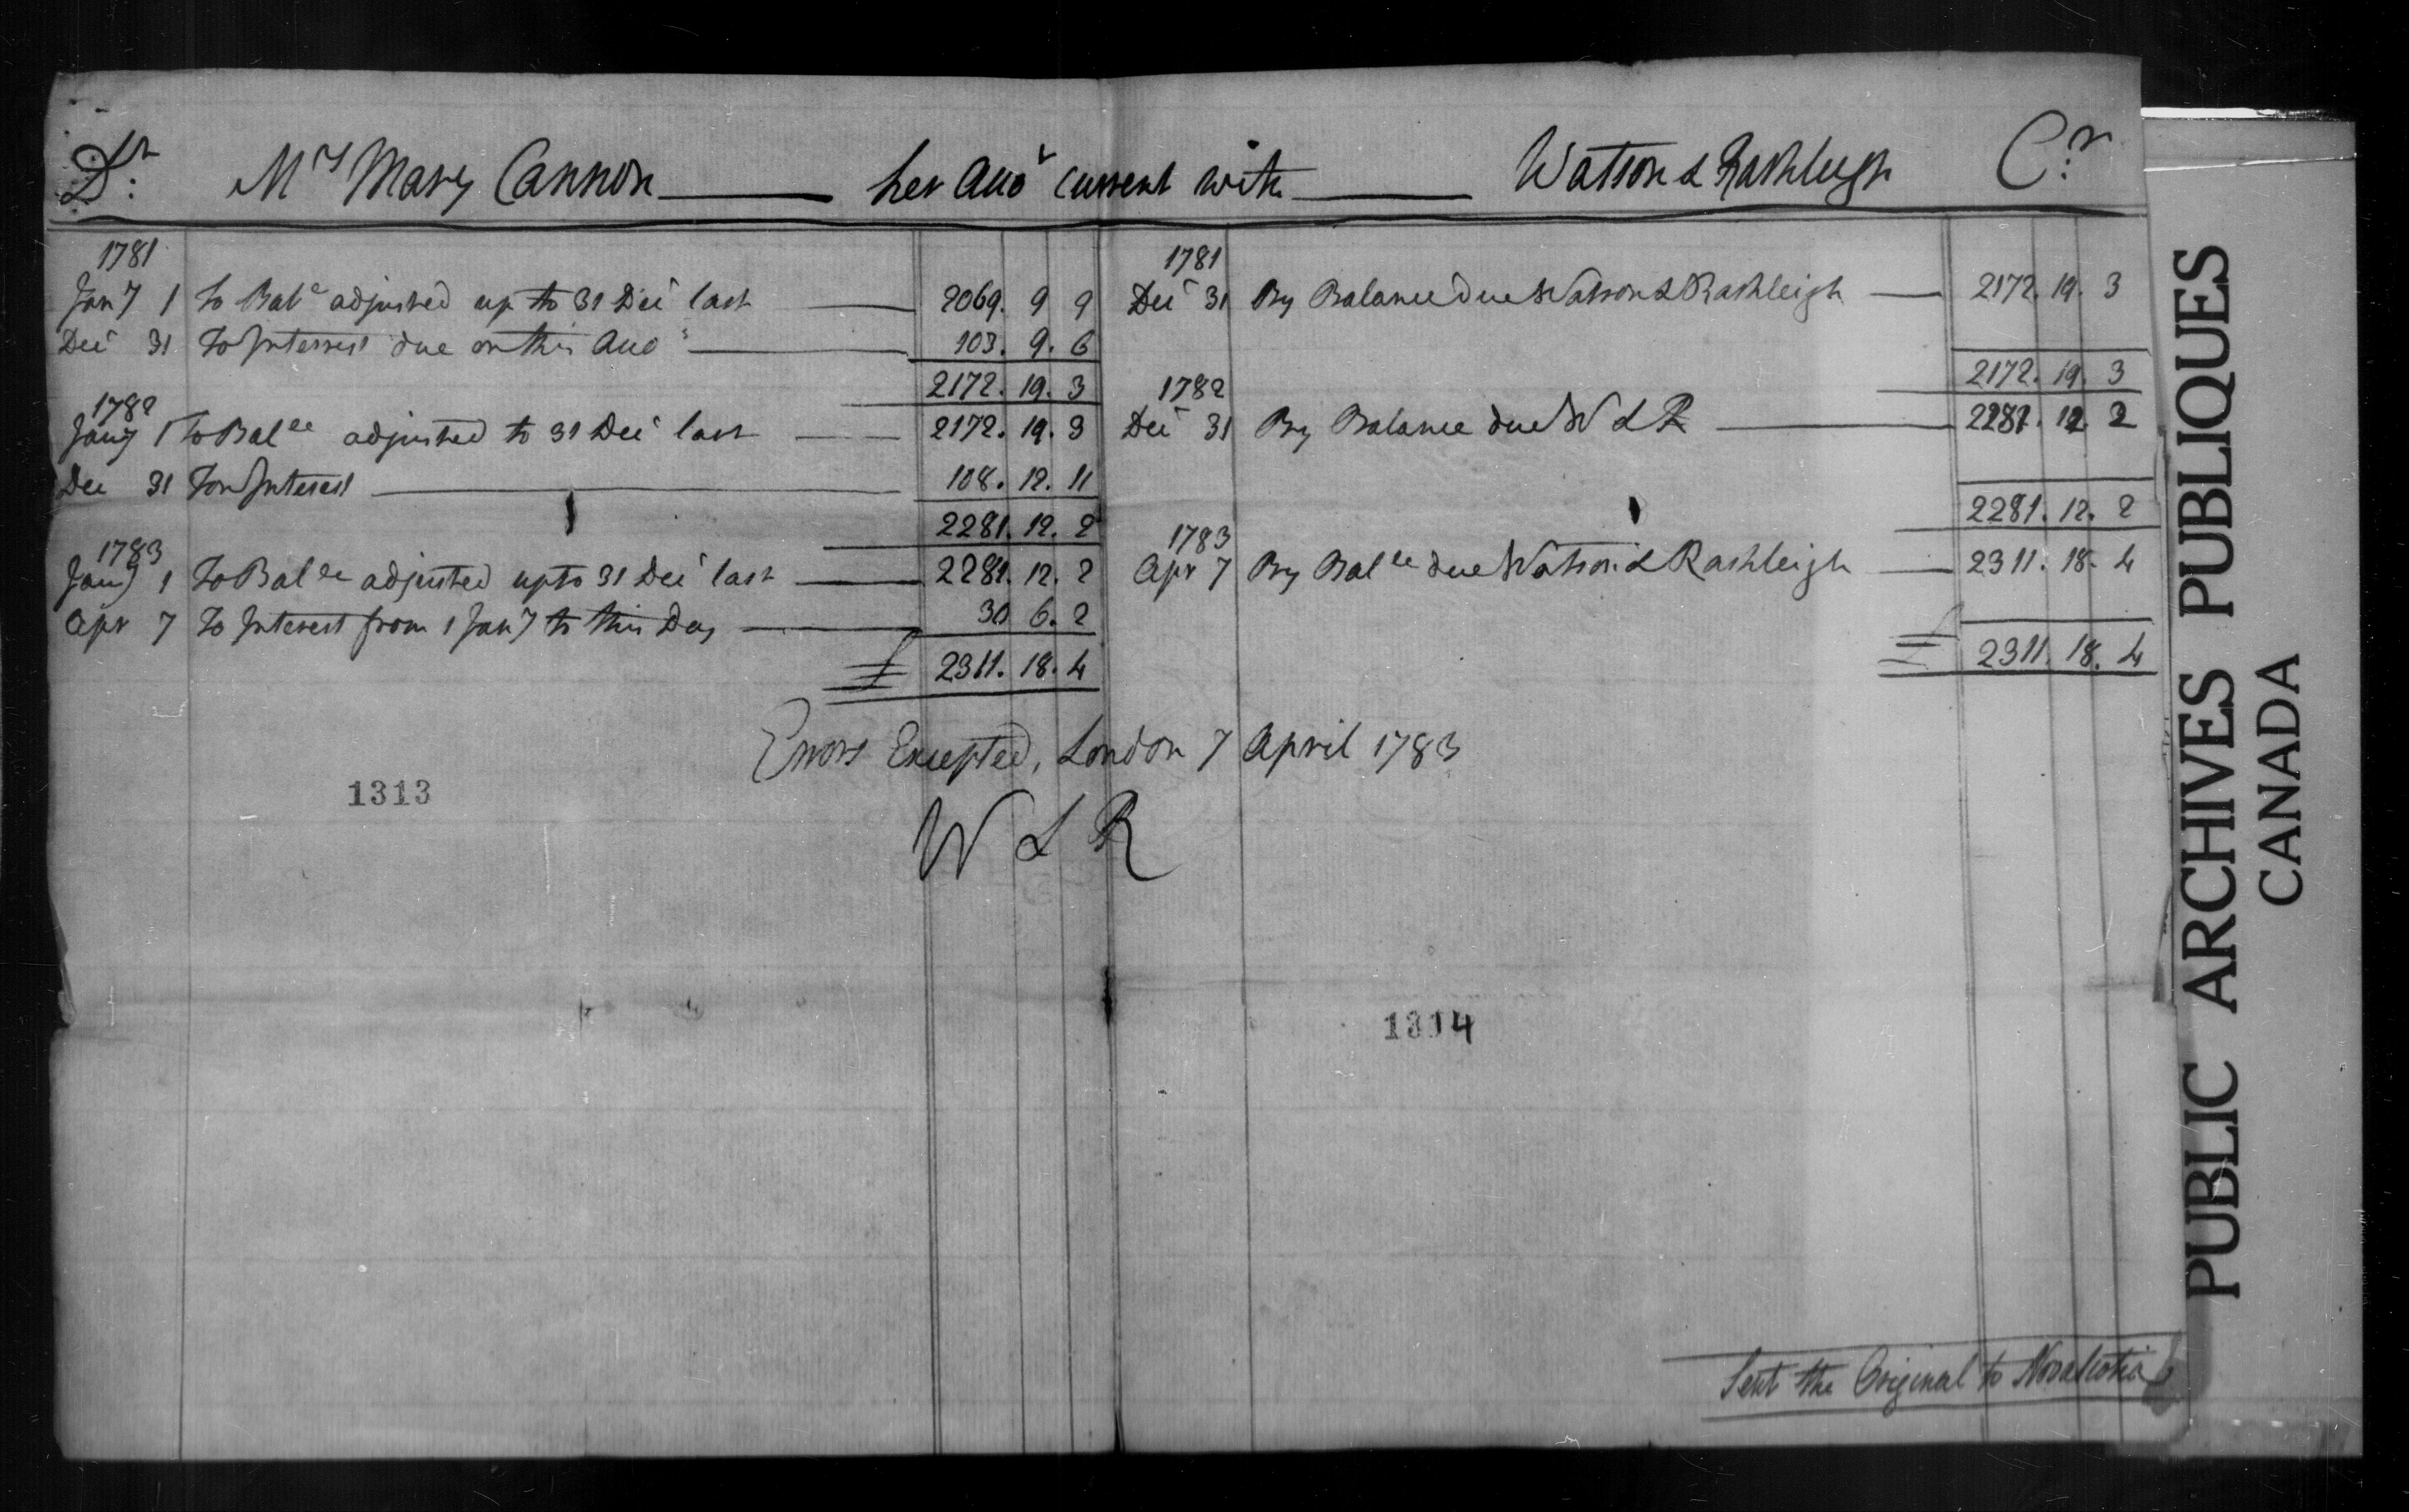 Dr. Mrs Mary Cannon her Acco't current with Watson & Rashleigh Cr.
1781
Jany 1 To Balce adjusted up to 31 Dec last 2069. 9 9
Dec 31 To Interest due on this Acco't 103. 9. 6
2172. 19. 3
1782
Jany 1 To Balce adjusted to 31 Dec last 2172. 19. 3
Dec 31 To Interest 108. 12. 11
2281. 12. 2
1783
Jany 1 To Balce adjusted up to 31 Dec last 2281. 12. 2
Apr 7 To Interest from 1 Jany to this Day 30 6. 2
£ 2311. 18. 4
1781
Dec 31 By Balance due Watson & Rashleigh 2172. 19. 3
2172. 19. 3
1782
Dec 31 By Balance due W & R 2281. 12. 2
2281. 12. 2
1783
Apr 7 By Balce due Watson & Rashleigh 2311. 18. 4
£ 2311. 18. 4
Errors Excepted, London 7 April 1783
W & R
1313
1314
Sent the Original to Nova Scotia
PUBLIC ARCHIVES PUBLIQUES
CANADA